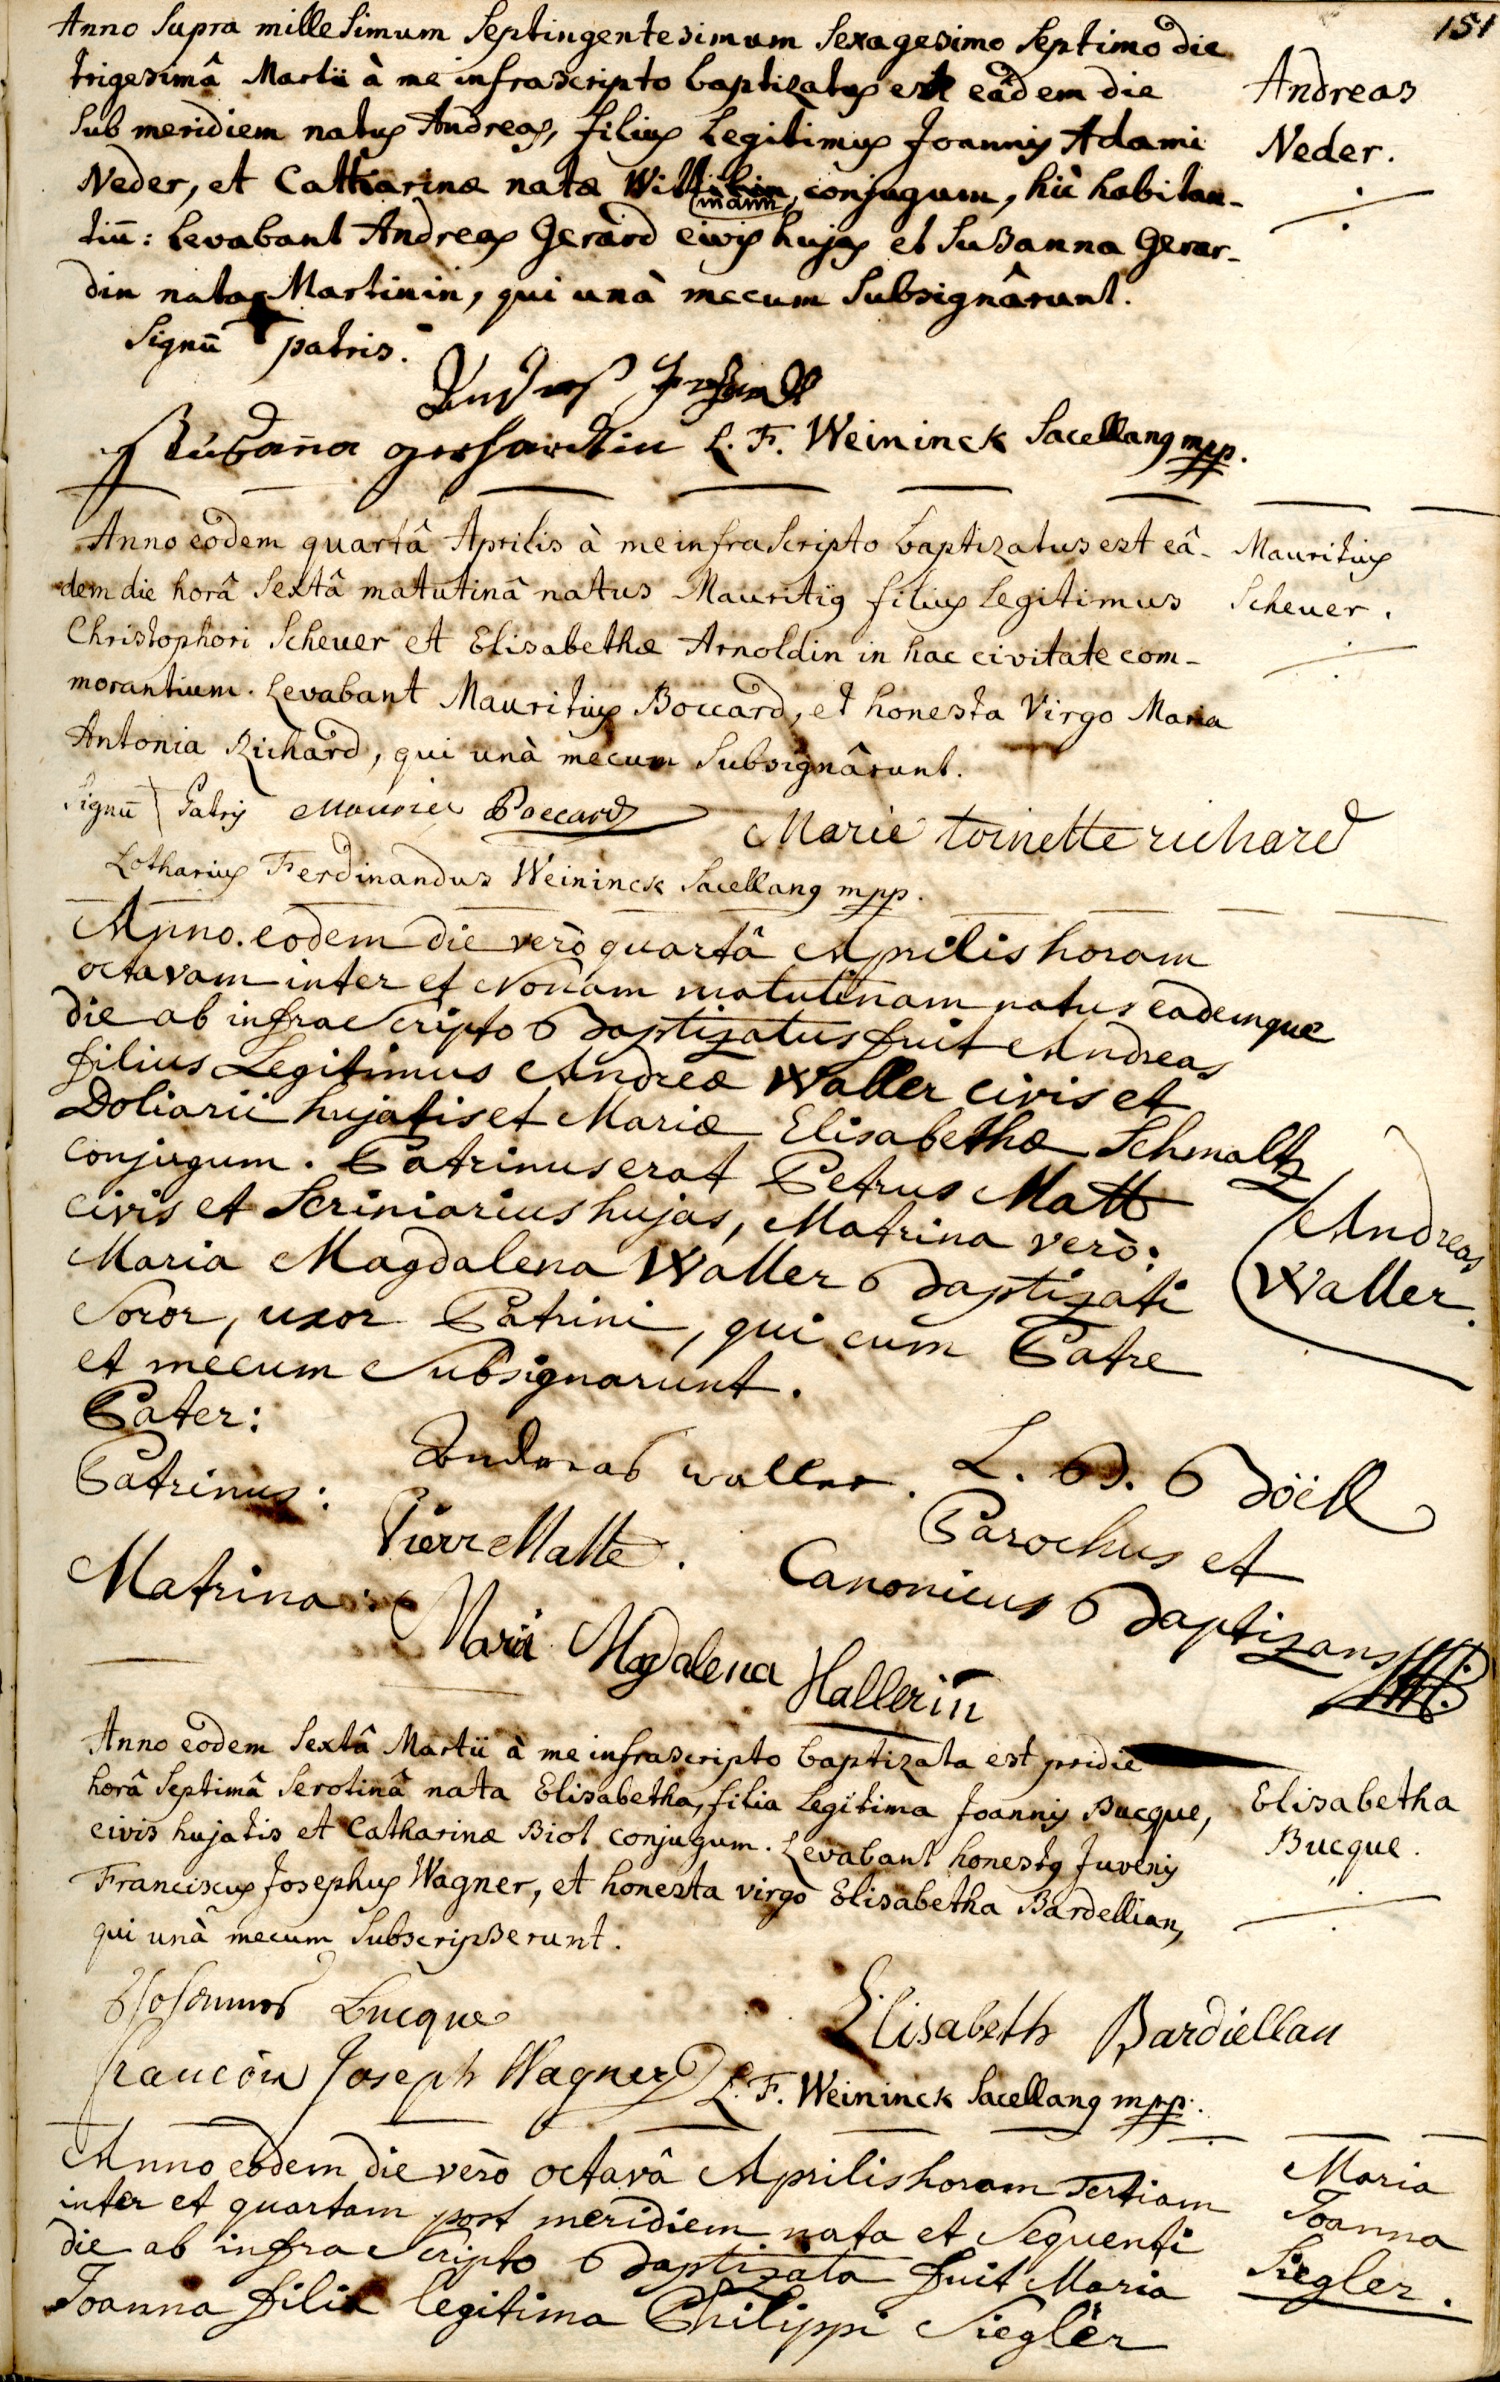 151
Anno Supra milleSimum Septingentesimum Sexagesimo Septimo die
trigesimâ Martii à me infrascripto baptizatus est eâdem die
Sub meridiem natus Andreas, filius Legitimus Joannis Adami
Neder, et Catharinæ natæ Witt mann, conjugum, hic habitan-
tiũ: Levabant Andreas Gerard civis hujas et Susanna Gerar-
din nata Martinin, qui unà mecum Subsignârunt.
Andreas
Neder.
Signũ patris.
Susaña gerhardin L. F. Weininck Sacellang mpp.
Anno eodem quartâ Aprilis à me infraScripto baptizatus est eâ-
dem die horâ Sextâ matutinâ natus Mauritig filius Legitimus
Christophori Scheuer et Elisabethæ Arnoldin in hac civitate com-
morantium. Levabant Mauritius Boccard, et honesta Virgo Maria
Antonia Richard, qui unà mecum Subsignârunt.
Mauritius
Scheuer.
Signũ Patris Maurice Boccard Marie toinette richard
Lotharius Ferdinandus Weininck Sacellang mpp.
Anno. eodem die verò quartâ Aprilis horam
octavam inter et Nonam matutinam natus eademque
die ab infraScripto Baptizatus fuit Andreas
filius Legitimus Andreæ Waller civis et
Doliarii hujatis et Mariæ Elisabethæ Schmaltz
conjugum. Patrinus erat Petrus Matt
civis et Scriniarius hujas, Matrina verò:
Maria Magdalena Waller Baptizati
Soror, uxor Patrini, qui cum Patre
et mecum Subsignarunt.
Andreas
Waller.
Pater: Andreas waller. L. B. Böell
Patrinus: Pierre Matte. Parochus et
Matrina: Maria Magdalena Hallerin Canonicus Baptizans
Anno eodem Sextâ Martii à me infrascripto baptizata est pridie
horâ Septimâ Serotinâ nata Elisabetha, filia Legitima Joannis Bucque,
civis hujatis et Catharinæ Biot conjugum. Levabant honestg Juvenis
Franciscus Josephus Wagner, et honesta virgo Elisabetha Bardellian,
qui unà mecum Subscripserunt.
Elisabetha
Bucque.
Johannes Bucque Elisabeth Bardiellan
francois Joseph Wagner L. F. Weininck Sacellang mpp.
Anno eodem die verò octavâ Aprilis horam Tertiam
inter et quartam post meridiem nata et Sequenti
die ab infraScripto Baptizata fuit Maria
Joanna filia legitima Philippi Siegler
Maria
Joanna
Siegler.